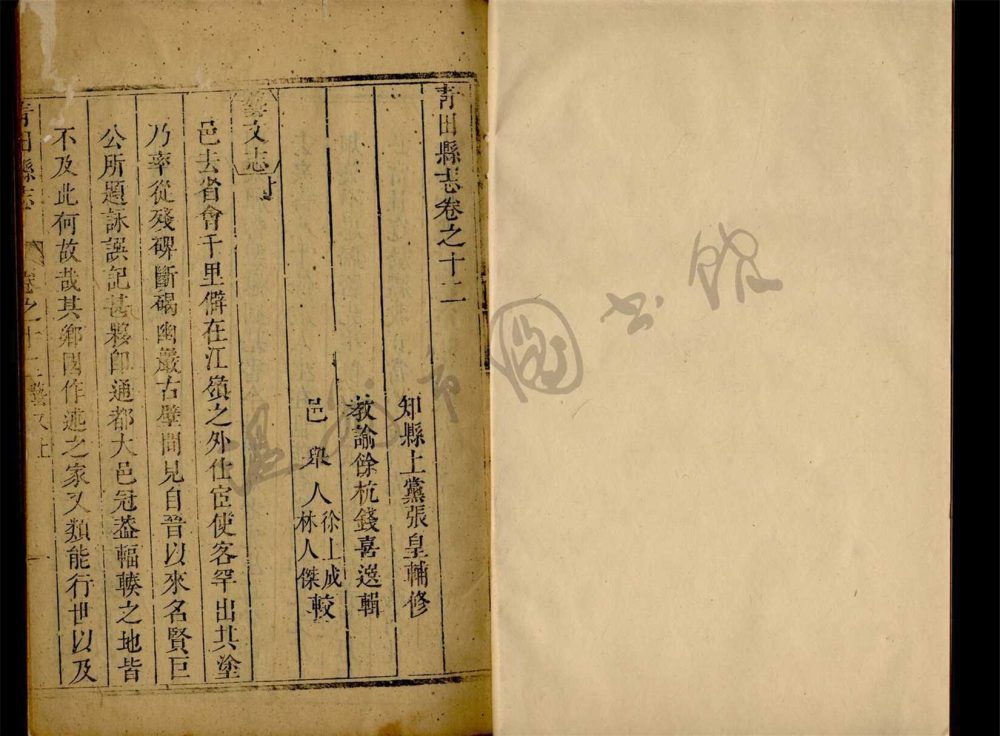 青田縣志卷之十二
知縣上黨張皇輔修
教諭餘杭錢喜選輯
邑舉人徐上成林人傑較
藝文志上
邑去省會千里僻在江嶺之外仕宦使客罕出其塗
乃率從殘碑斷碣幽巖古壁間見自晉以來名賢巨
公所題詠誤記甚夥即通都大邑冠蓋輻輳之地皆
不及此何故哉其鄉國作述之家又類能行世以及
青田縣志 卷之十二藝文上 一
圖書館